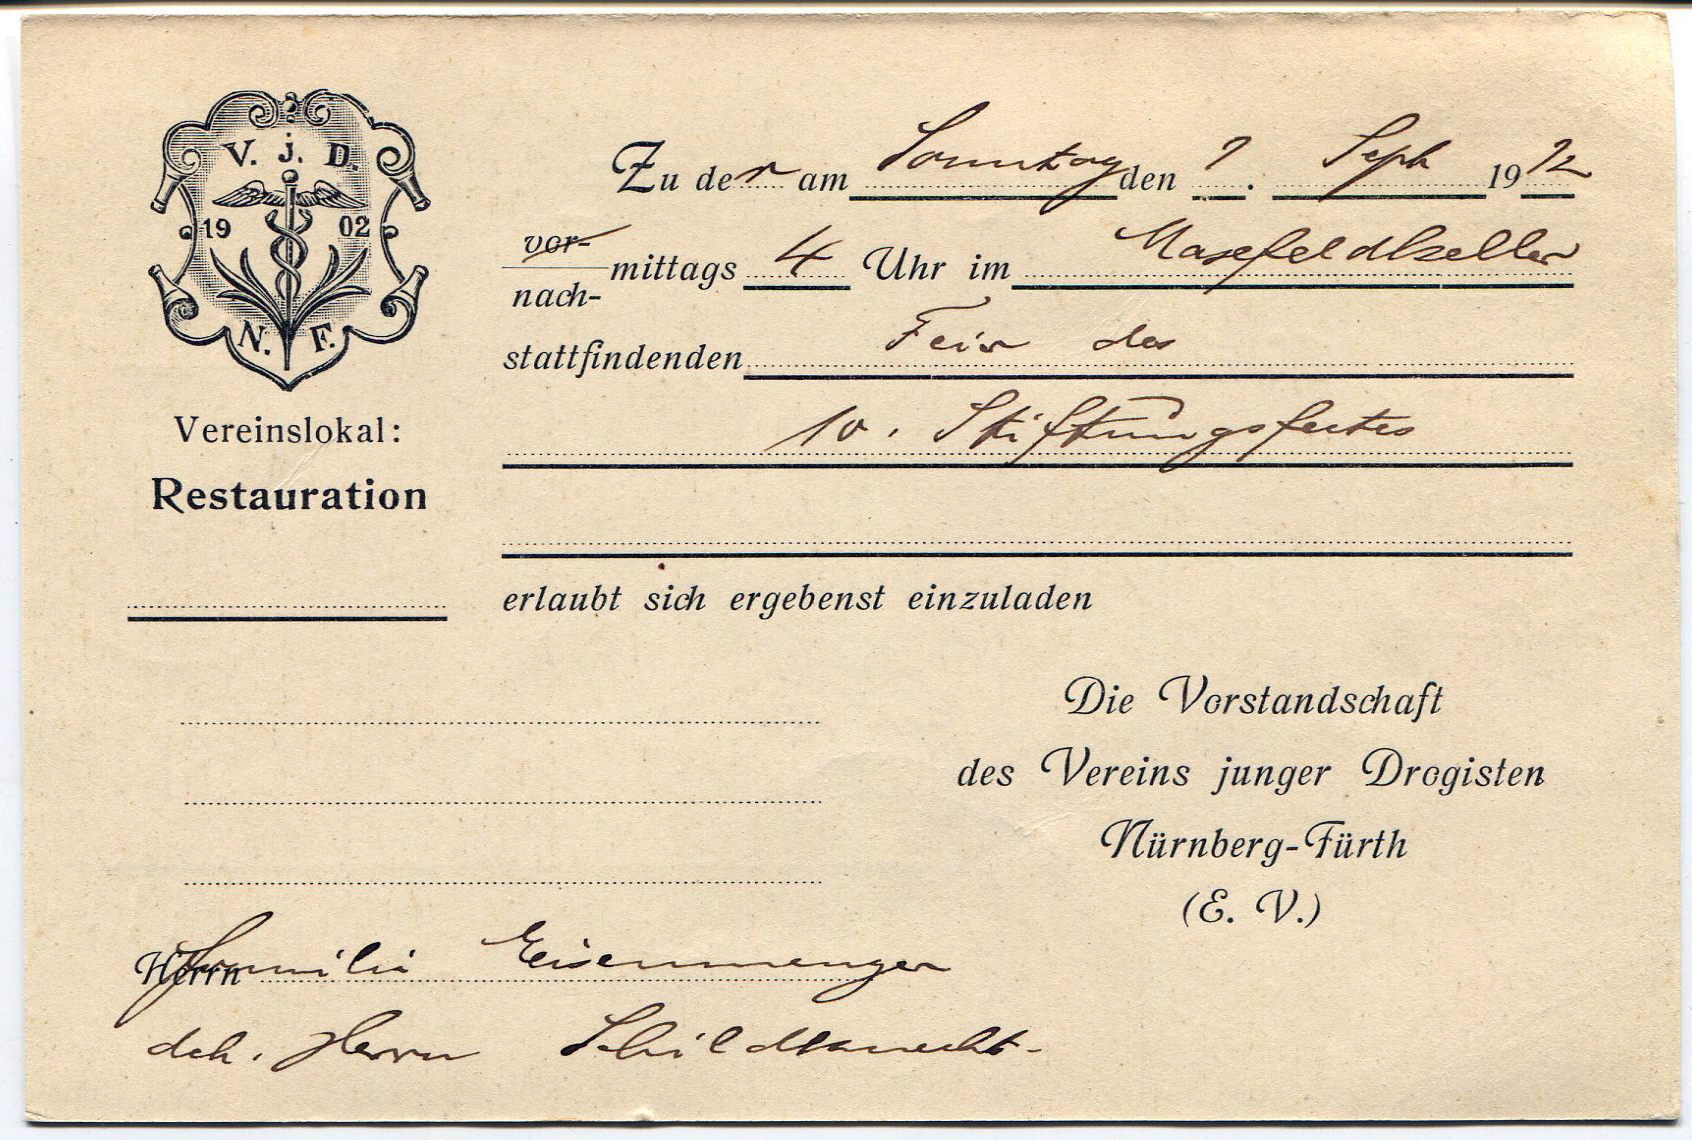 V. j. D.
19 02
N. F.
Vereinslokal:
Restauration
Zu der am Sonntag den 1. Sept 1912
vor-
mittags 4 Uhr im Maxfeldkeller
nach-
stattfindenden Feier des
10. Stiftungsfestes
erlaubt sich ergebenst einzuladen
Die Vorstandschaft
des Vereins junger Drogisten
Nürnberg-Fürth
(E. V.)
Herrn Familie Eisenmenger
dch. Herrn Schildknecht.